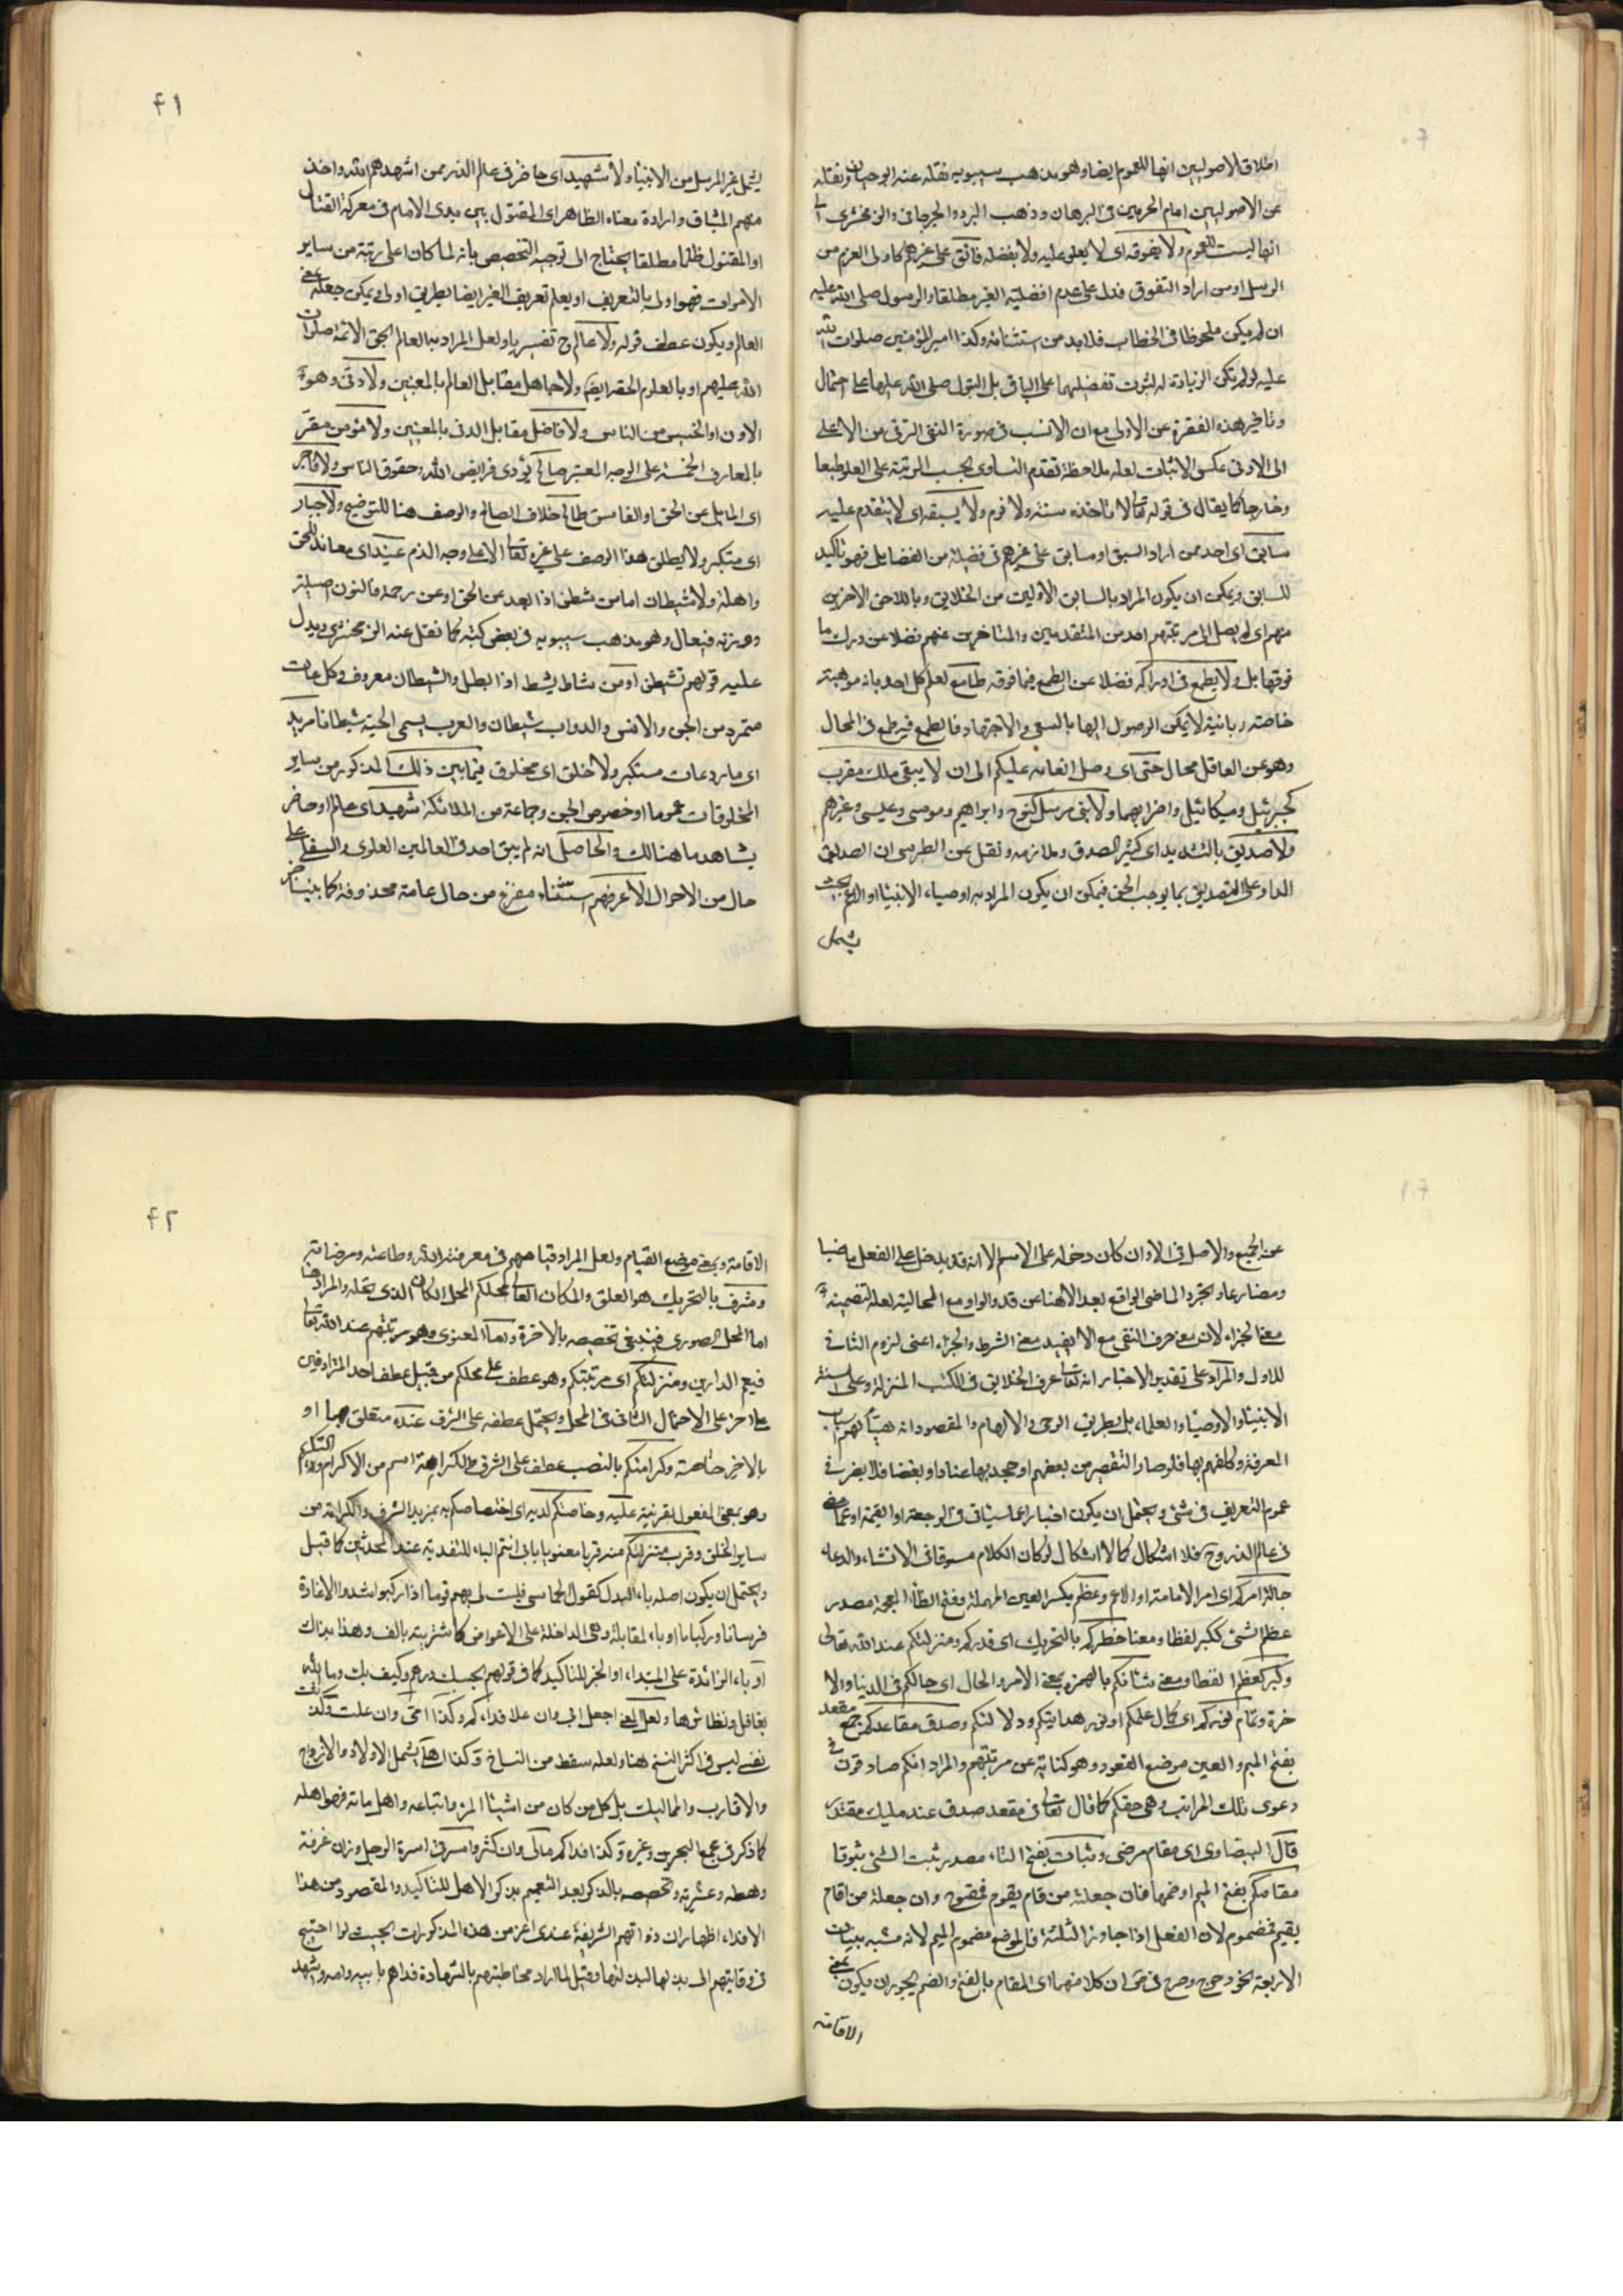 اخلاق الاصوليين انها للعموم ايضا وهو مذهب سيبويه نقله عنه ابو حيان ونقله
عن الاصوليين امام الحرمين في البرهان وذهب المبرد والجرجاني والزمخشري الى
انها ليست للعموم ولا يفوقه اي لا يعلو عليه ولا يفضله فائق على غيرهم كاولى العزم من
الرسل او من اراد التفوق فدل على عدم افضلية الغير مطلقا والرسول صلى الله عليه
ان لم يكن ملحوظا في الخطاب فلا بد من استثنائه وكذا امير المؤمنين صلوات الله
عليه لو لم تكن الزيادة له لثبوت تفضيلهما على الباقي بل البتول صلى الله عليها على احتمال
وتاخير هذه الفقرة عن الاولى مع ان الانسب في صورة النفي الترقي من الاعلى
الى الادنى عكس الاثبات لعله ملاحظة تقدم التساوي بحسب المرتبة على العلو طبعا
وخارجا كما يقال في قوله تعالى لا تاخذه سنة ولا نوم ولا يسبقه اي لا يتقدم عليه
سابق اي احد ممن اراد السبق او سابق على غيرهم في فضيلة من الفضايل فهو تاكيد
للسابق ويمكن ان يكون المراد بالسابق الاولين من الخلايق وباللاحق الاخرين
منهم اي لم يصل الى مرتبتهم احد من المتقدمين والمتاخرين عنهم فضلا عن درك ما
فوقها بل ولا يطمع في ادراكه فضلا عن الطمع فيما فوقه طامع لعلم كل احد بانه موهبة
خاصة ربانية لا يمكن الوصول اليها بالسعي والاجتهاد فالطمع فيه طمع في المحال
وهو من العاقل محال حتى اي وصل انعامه عليكم الى ان لا يبقى ملك مقرب
كجبرئيل وميكائيل واضرابهما ولا نبي مرسل كنوح وابراهيم وموسى وعيسى وغيرهم
ولا صديق بالتشديد اي كثير الصدق وملازمه ونقل عن الطبرسي ان الصديق
المداوم على التصديق بما يوجب الحق فيمكن ان يكون المراد به اوصياء الانبياء او الاعم بحيث
يشمل
٤١
يشمل غير المرسل من الانبياء ولا شهيد اي حاضر في عالم الذر ممن اشهدهم الله واخذ
منهم الميثاق وارادة معناه الظاهر اي المقتول بين يدي الامام في معركة القتال
او المقتول ظلما مطلقا يحتاج الى توجيه التخصيص بانه لما كان اعلى رتبة من ساير
الاموات فهو اولى بالتعريف او يعلم تعريف الغير ايضا بطريق اولى ويمكن جعله بمعنى
العالم ويكون عطف قوله ولا عالم ح تفسيريا ولعل المراد به العالم بحق الائمة صلوات
الله عليهم او بالعلوم الحقة ايضا ولا جاهل مقابل العالم بالمعنيين ولا دني وهو
الادون او الخسيس من الناس ولا فاضل مقابل الدني بالمعنيين ولا مؤمن مقر
بالمعارف الخمسة على الوجه المعتبر صالح يؤدي فرايض الله وحقوق الناس ولا فاجر
اي المايل عن الحق او الفاسق طالح خلاف الصالح والوصف هنا للتوضيح ولا جبار
اي متكبر ولا يطلق هذا الوصف على غيره تعالى الا على وجه الذم عنيد اي معاند للحق
واهله ولا شيطان اما من شطن اذا بعد عن الحق او عن رحمة فالنون اصلية
ووزنه فيعال وهو مذهب سيبويه في بعض كتبه كما نقل عنه الزمخشري ويدل
عليه قولهم تشيطن او من شاط يشيط اذا بطل والشيطان معروف وكل عات
متمرد من الجن والانس والدواب شيطان والعرب يسمى الحية شيطانا مريد
اي مارد عات مستكبر ولا خلق اي مخلوق فيما بين ذلك المذكور من ساير
المخلوقات عموما او خصوص الجن وجماعة من الملائكة شهيد اي عالم او حاضر
يشاهد ما هنالك والحاصل انه لم يبق احد في العالمين العلوي والسفلي على
حال من الاحوال الا عرفهم استثناء مفرغ من حال عامة محذوفة كما بينا خبر
عن الجميع والاصل في الا وان كان دخوله على الاسم الا انه قد يدخل على الفعل ماضيا
ومضارعا وتجرد الماضي الواقع بعد الا هنا عن قد والواو مع الحالية لعله لتضمينه
معنى الجزاء لان معنى حرف النفي مع الا يفيد معنى الشرط والجزاء اعني لزوم الثاني
للاول والمراد على تقدير الاخبار انه تعالى عرف الخلايق في الكتب المنزلة وعلى السنة
الانبياء والاوصياء والعلماء بل بطريق الوحي والالهام والمقصود انه هيأ لهم اسباب
المعرفة وكلفهم بها فلو صار التقصير من بعضهم او جحد بها عنادا وبغضا فلا يضر في
عموم التعريف في شئ ويحتمل ان يكون اخبارا عما سيأتي في الرجعة او القيمة او عما مضى
في عالم الذر وح فلا اشكال كما لا اشكال لو كان الكلام مسوقا في الانشاء والدعاء
جلالة امركم اي امر الامامة او الاعم وعظم بكسر العين المهملة وفتح الظاء المعجمة مصدر
عظم الشئ ككبر لفظا ومعنا خطركم بالتحريك اي قدركم ومنزلتكم عند الله تعالى
وكبر كعظم لفظا ومعنى شانكم بالهمزة بمعنى الامر والحال اي حالكم في الدنيا والا
خرة وتمام نوركم اي كمال علمكم او نور هدايتكم ودلالتكم وصدق مقاعدكم جمع مقعد
بفتح الميم والعين موضع القعود وهو كناية عن مرتبتهم والمراد انكم صادقون في
دعوى تلك المراتب وهي حقكم كما قال تعالى في مقعد صدق عند مليك مقتدر
قال البيضاوي اي مقام مرضي وثبات بفتح الثاء مصدر ثبت الشئ ثبوتا
مقامكم بفتح الميم او ضمها فان جعلته من قام يقوم فمفتوح وان جعلته من اقام
يقيم فمضموم لان الفعل اذا جاوز الثلثة فالموضع مضموم الميم لانه مشبه ببنات
الاربعة نحو دحرج وصرح في ق ان كلا منهما اي المقام بالفتح والضم يجوز ان يكون بمعنى
الاقامة
٤٢
الاقامة وبمعنى موضع القيام ولعل المراد قيامهم في معرفة الله وطاعته ومرضاته
وشرف بالتحريك هو العلو والمكان العالي محلكم المحل المكان الذي تحله والمراد هنا
اما المحل الصوري فينبغي تخصيصه بالاخرة واما المعنوي وهو مرتبتهم عند الله تعالى
فيعم الدارين ومنزلتكم اي مرتبتكم وهو عطف على محلكم من قبيل عطف احد المترادفين
على الاخر على الاحتمال الثاني في المحل ويحتمل عطفه على الشرف عنده متعلق بهما او
بالاخير خاصة وكرامتكم بالنصب عطف على الشرف والكرامة اسم من الاكرام والتكريم
وهو بمعنى المفعول بقرينة عليه وخاصتكم لديه اي اختصاصكم به بمزيد الشرف والكرامة من
ساير الخلق وقرب منزلتكم منه قربا معنويا بابي انتم الباء للتفدية عند المحدثين كما قيل
ويحتمل ان يكون اصله باء البدل كقول الحماسي فليت لي بهم قوما اذا ركبوا شدوا الاغارة
فرسانا وركبانا او باء المقابلة وهي الداخلة على الاعواض كاشتريته بالف وهذا بذاك
او باء الزائدة على المبتداء او الخبر للتاكيد كما في قولهم بحسبك درهم وكيف بك وما الله
بغافل ونظائرها ولعل المعنى اجعل ابي وان علا فداءكم وكذا امي وان علت وكذا
نفسي ليس في اكثر النسخ هنا ولعله سقط من النساخ وكذا اهلي يشمل الاولاد والازواج
والاقارب والمماليك بل كل من كان من اشياع المرء واتباعه واهل بيته فهو اهله
كما ذكر في مجمع البحرين وغيره وكذا افداكم مالي وان كثر واسرتي اسرة الرجل وزان غرفة
رهطه وعشيرته وتخصيصه بالذكر بعد التعميم بذكر الاهل للتاكيد والمقصود من هذا
الافداء اظهار ان ذواتهم الشريفة عندي اعز من هذه المذكورات بحيث لو احتيج
في وقايتهم الى بذلها لبذلتها وقيل لما اراد مخاطبتهم بالشهادة فداهم بابيه وامه وشهد